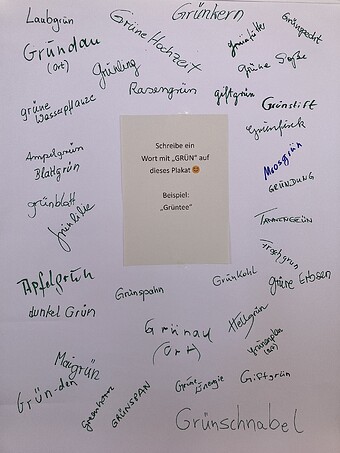 Laubgrün
Grüne Hochzeit
Grünkern
Grünspecht
Gründau
(Ort)
Grünling
Grünfutter
Grüne Soße
Rasengrün
giftgrün
Grünstift
grüne
Wasserpflanze
Grünfink
Schreibe ein
Wort mit „GRÜN" auf
dieses Plakat
Beispiel:
„Grüntee"
Ampelgrün
Blattgrün
Moosgrün
GRÜNDUNG
grünblatt
grünlilie
TANNENGRÜN
Apfelgrün
Grünspahn
Grünkohl
grüne Erbsen
dunkel Grün
Grünau
(Ort)
Hellgrün
Maigrün
Grün-den
GRÜNSPAN
Grüne Energie
Giftgrün
Grünschnabel